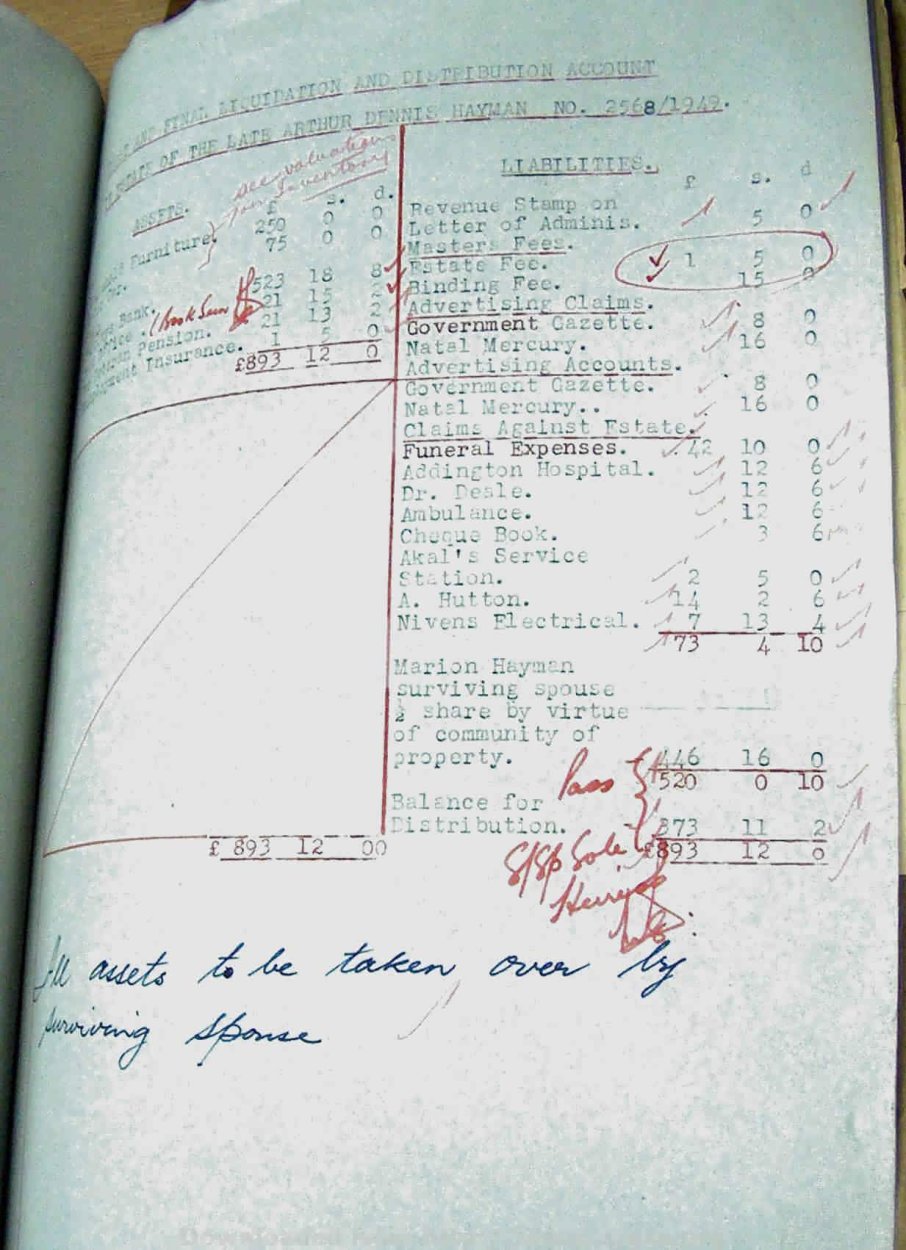 AND FINAL LIQUIDATION AND DISTRIBUTION ACCOUNT
ESTATE OF THE LATE ARTHUR DENNIS HAYMAN NO. 2568/1949.
see valuation
inventory
ASSETS.
£ s. d.
Furniture. 250 0 0
75 0 0
Bank. 523 18 8
(Book Seen) 21 15 2
Pension. 21 13 2
Insurance. 1 5 0
£893 12 0
LIABILITIES.
£ s. d
Revenue Stamp on
Letter of Adminis. 5 0
Masters Fees.
Estate Fee. 1 5 0
Binding Fee. 15 0
Advertising Claims.
Government Gazette. 8 0
Natal Mercury. 16 0
Advertising Accounts.
Government Gazette. 8 0
Natal Mercury.. 16 0
Claims Against Estate.
Funeral Expenses. 42 10 0
Addington Hospital. 12 6
Dr. Deale. 12 6
Ambulance. 12 6
Cheque Book. 3 6
Akal's Service
Station. 2 5 0
A. Hutton. 14 2 6
Nivens Electrical. 7 13 4
73 4 10
Marion Hayman
surviving spouse
½ share by virtue
of community of
property. 446 16 0
Pass 520 0 10
Balance for
Distribution. 373 11 2
£893 12 0
£ 893 12 00
S/Sp Sole
All assets to be taken over by
surviving spouse